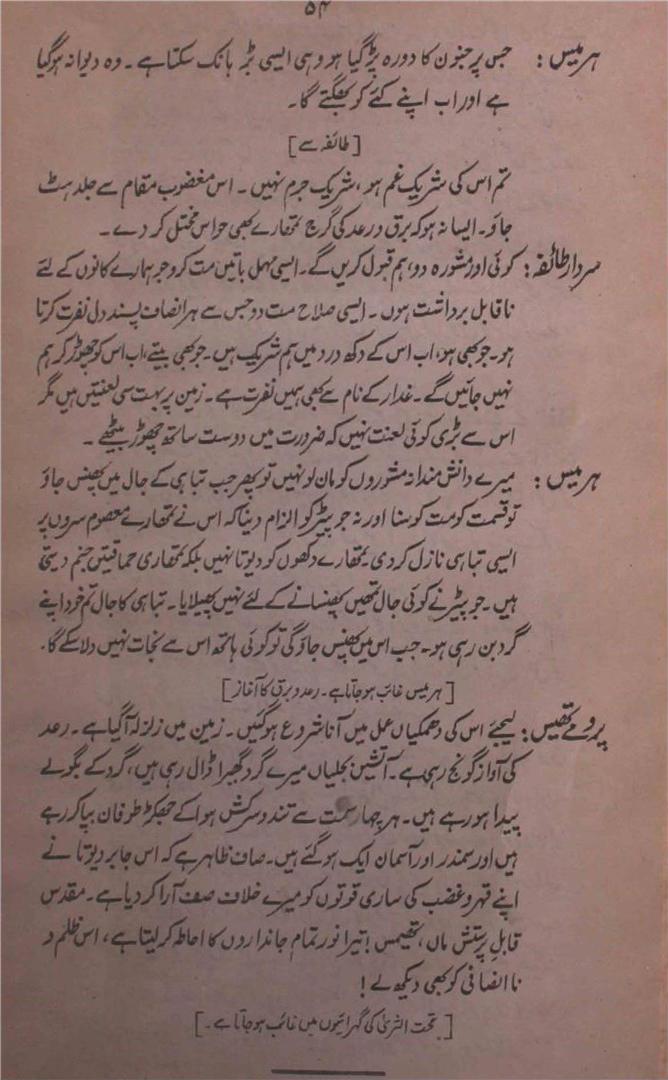 ۵۴
ہرمیس : جس پر جنون کا دورہ پڑ گیا ہو وہی ایسی بڑ ہانک سکتا ہے۔ وہ دیوانہ ہوگیا
ہے اور اب اپنے کئے کو بھگتے گا۔
[طائفہ سے]
تم اس کی شریک غم ہو، شریک جرم نہیں۔ اس مغضوب مقام سے جلد ہٹ
جاؤ۔ ایسا نہ ہو کہ برق و رعد کی گرج تمھارے بھی حواس مختل کر دے۔
سردار طائفہ : کوئی اور مشورہ دو، ہم قبول کریں گے۔ ایسی مہمل باتیں مت کرو جو ہمارے کانوں کے لئے
ناقابل برداشت ہوں۔ ایسی صلاح مت دو جس سے ہر انصاف پسند دل نفرت کرتا
ہو۔ جو بھی ہو، اب اس کے دکھ درد میں ہم شریک ہیں۔ جو بھی بیتے، اب اس کو چھوڑ کر ہم
نہیں جائیں گے۔ غدار کے نام سے بھی ہمیں نفرت ہے۔ زمین پر بہت سی لعنتیں ہیں مگر
اس سے بڑی کوئی لعنت نہیں کہ ضرورت میں دوست ساتھ چھوڑ بیٹھے۔
ہرمیس : میرے دانش مندانہ مشوروں کو مان لو نہیں تو پھر جب تباہی کے جال میں پھنس جاؤ
تو قسمت کو مت کوسنا اور نہ جوپیٹر کو الزام دینا کہ اس نے تمھارے معصوم سروں پر
ایسی تباہی نازل کر دی۔ تمھارے دکھوں کو دیوتا نہیں بلکہ تمھاری حماقتیں جنم دیتی
ہیں۔ جوپیٹر نے کوئی جال تمھیں پھنسانے کے لئے نہیں پھیلایا۔ تباہی کا جال تم خود اپنے
گرد بن رہی ہو۔ جب اس میں پھنس جاؤ گی تو کوئی ہاتھ اس سے نجات نہیں دلا سکے گا۔
[ہرمیس غائب ہو جاتا ہے۔ رعد و برق کا آغاز]
پرومے تھیس : لیجئے اس کی دھمکیاں عمل میں آنا شروع ہوگئیں۔ زمین میں زلزلہ آگیا ہے۔ رعد
کی آواز گونج رہی ہے۔ آتشیں بجلیاں میرے گرد گھیرا ڈال رہی ہیں، گرد کے بگولے
پیدا ہو رہے ہیں۔ ہر چہار سمت سے تند و سرکش ہوا کے جھکڑ طوفان بپا کر رہے
ہیں اور سمندر اور آسمان ایک ہو گئے ہیں۔ صاف ظاہر ہے کہ اس جابر دیوتا نے
اپنے قہر و غضب کی ساری قوتوں کو میرے خلاف صف آرا کر دیا ہے۔ مقدس
قابل پرستش ماں، تھیمس! تیرا نور تمام جانداروں کا احاطہ کر لیتا ہے، اس ظلم و
نا انصافی کو بھی دیکھ لے!
[تحت الثریٰ کی گہرائیوں میں غائب ہو جاتا ہے۔]